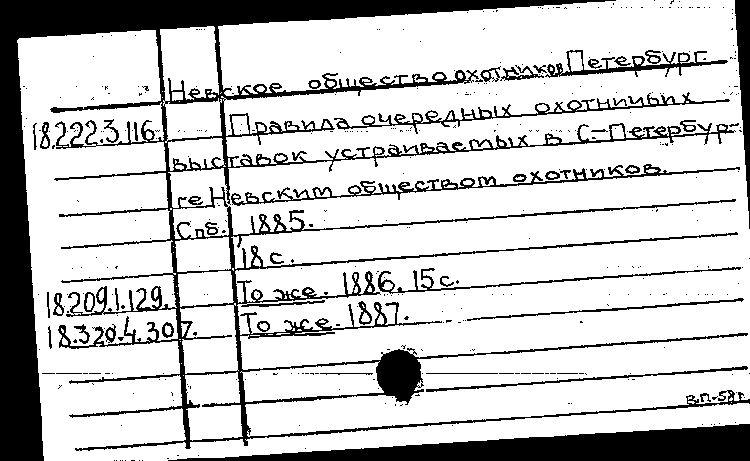 Невское общество охотников Петербург.
18.222.3.116. Правила очередных охотничьих
выставок устраиваемых в С.-Петербур-
ге Невским обществом охотников.
Спб., 1885.
18 с.
18.209.1.129. То же. 1886. 15 с.
18.320.4.307. То же. 1887.
в.п.-58г